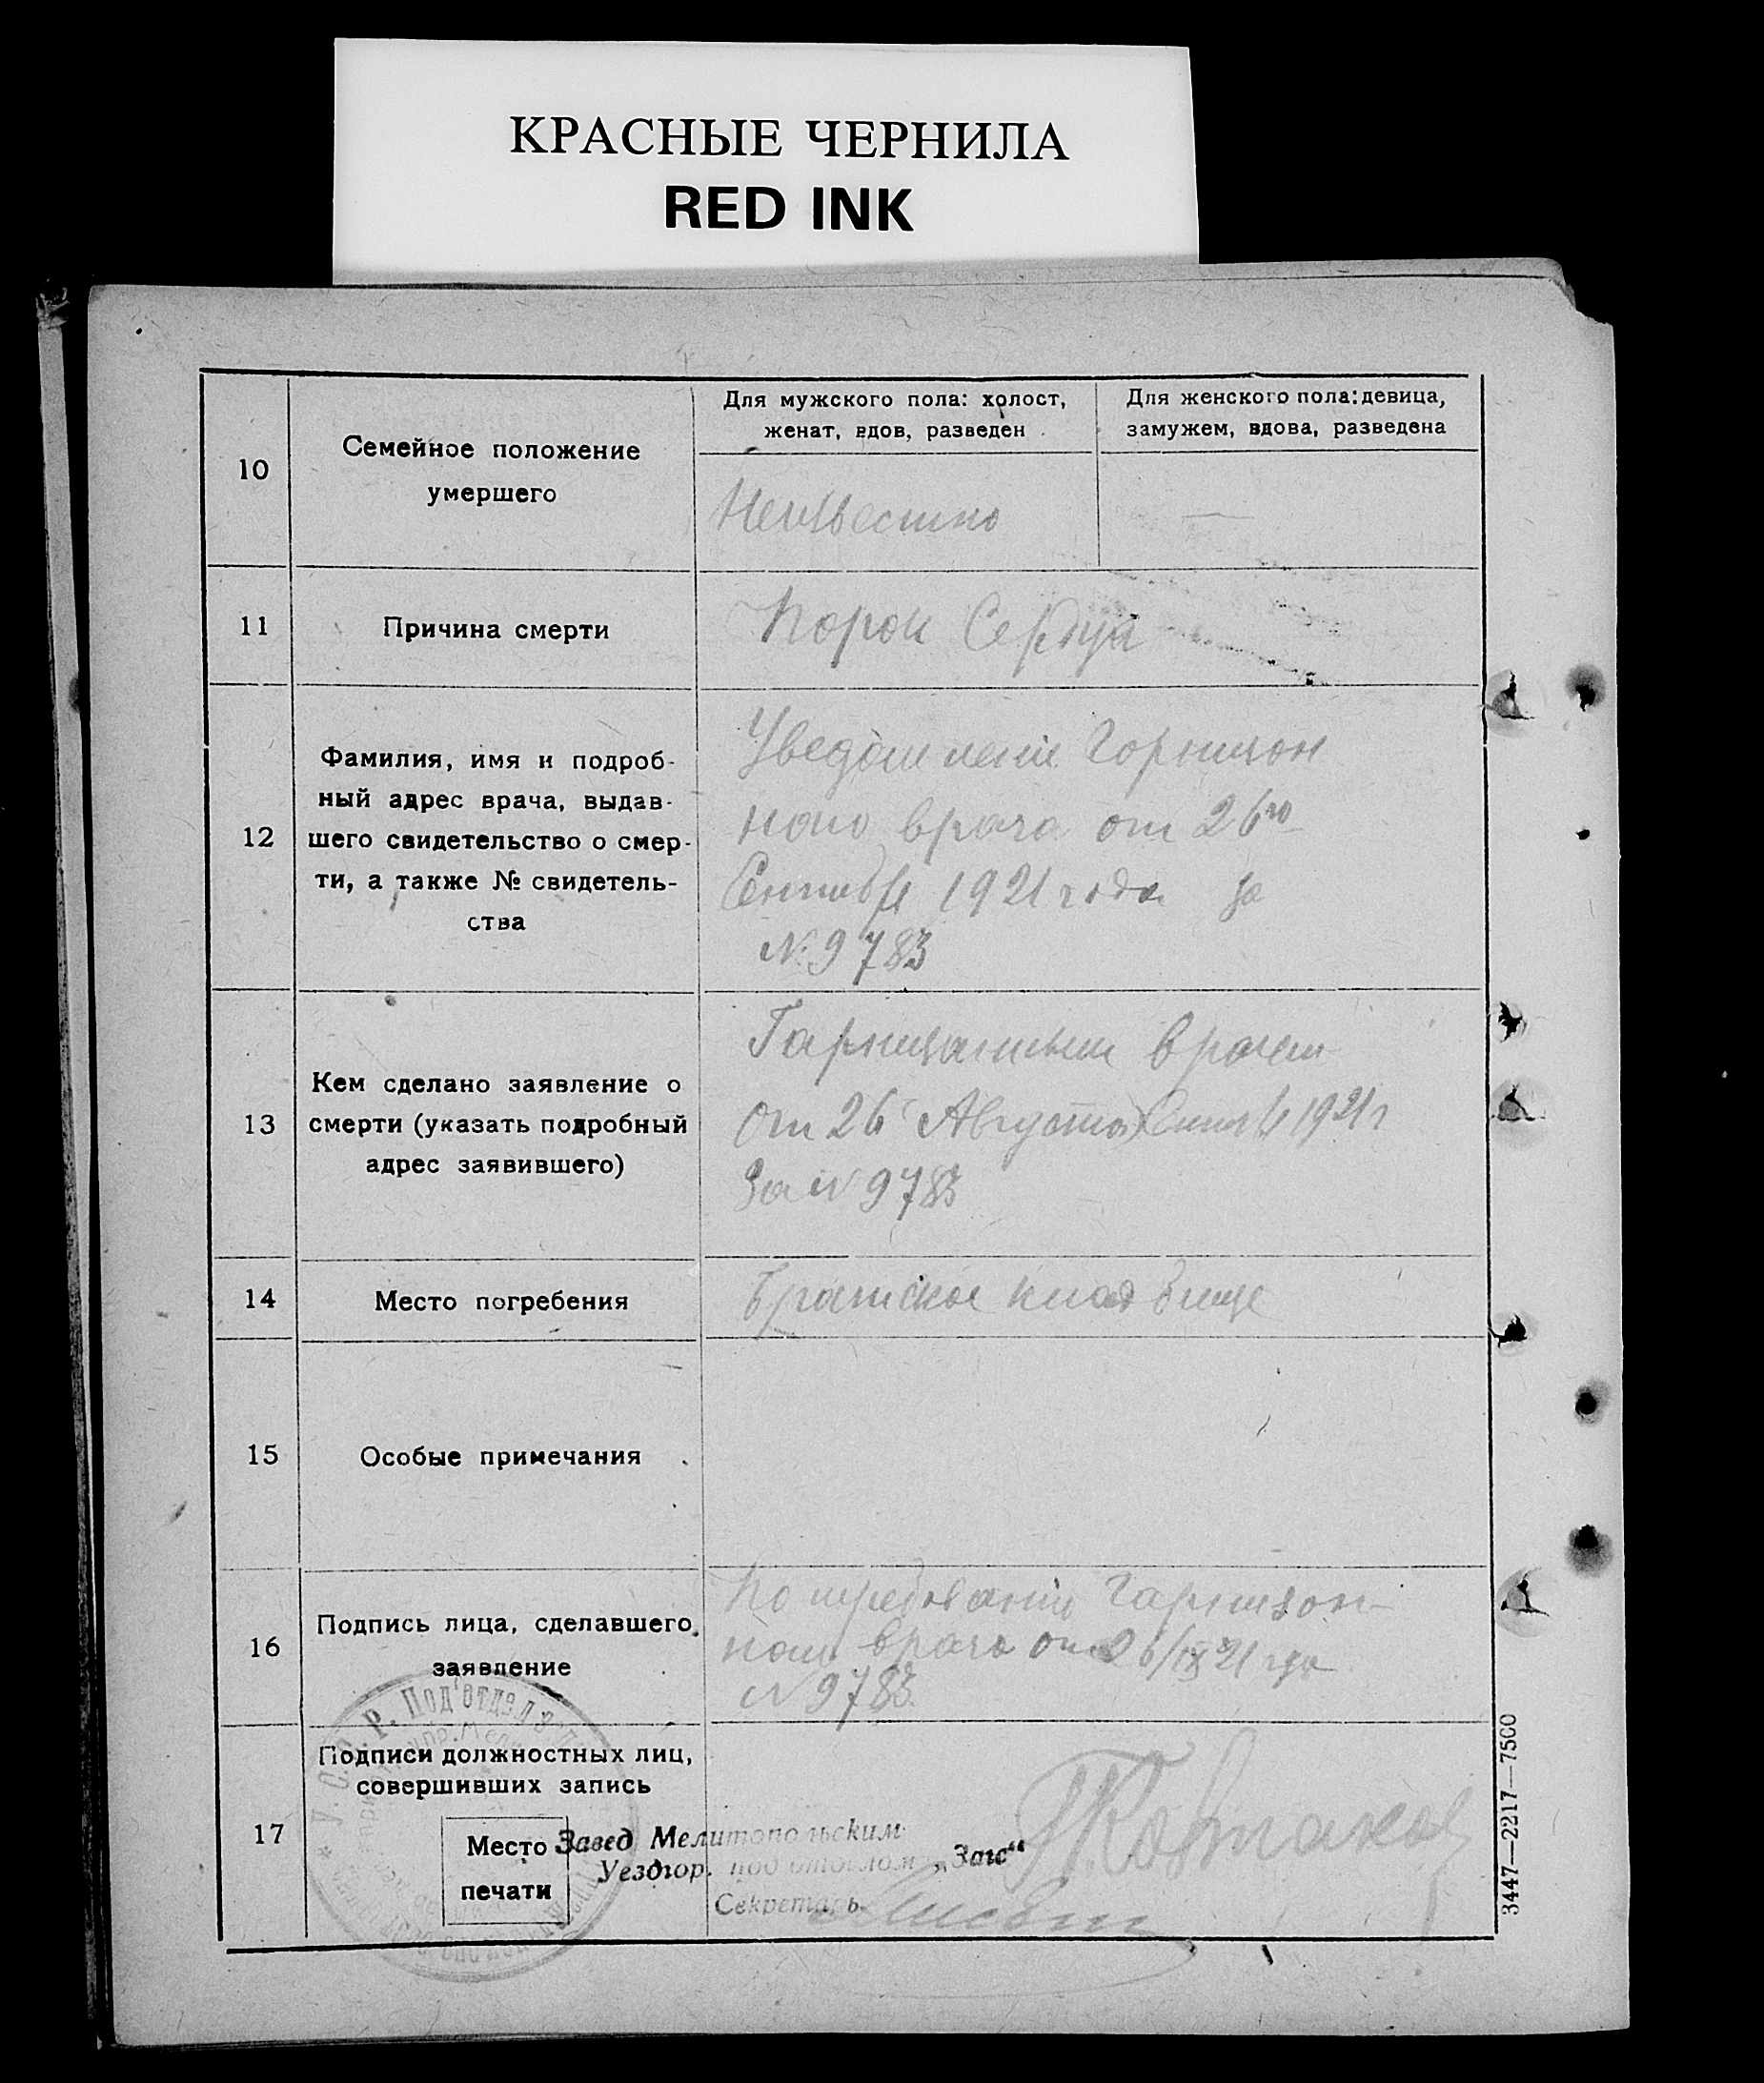 КРАСНЫЕ ЧЕРНИЛА
RED INK
10
Семейное положение
умершего
Для мужского пола: холост,
женат, вдов, разведен
Для женского пола: девица,
замужем, вдова, разведена
Неизвестно
—
11
Причина смерти
Порок Сердца
12
Фамилия, имя и подроб-
ный адрес врача, выдав-
шего свидетельство о смер-
ти, а также № свидетель-
ства
Уведомление Горнизон
ного врача от 26го
Сентября 1921 года за
№ 9783
13
Кем сделано заявление о
смерти (указать подробный
адрес заявившего)
Гарнизонным врачем
От 26 Августа 1921 г
За № 9783
14
Место погребения
Братское кладбище
15
Особые примечания
16
Подпись лица, сделавшего
заявление
По требованию Гарнизон-
ного врача от 26/IX 21 года
№ 9783
17
Подписи должностных лиц,
совершивших запись
Место
печати
Завед Мелитопольским
Уездгор. под отделом „Загс“
Секретарь
Р. Под'отдел
3447—2217—7500